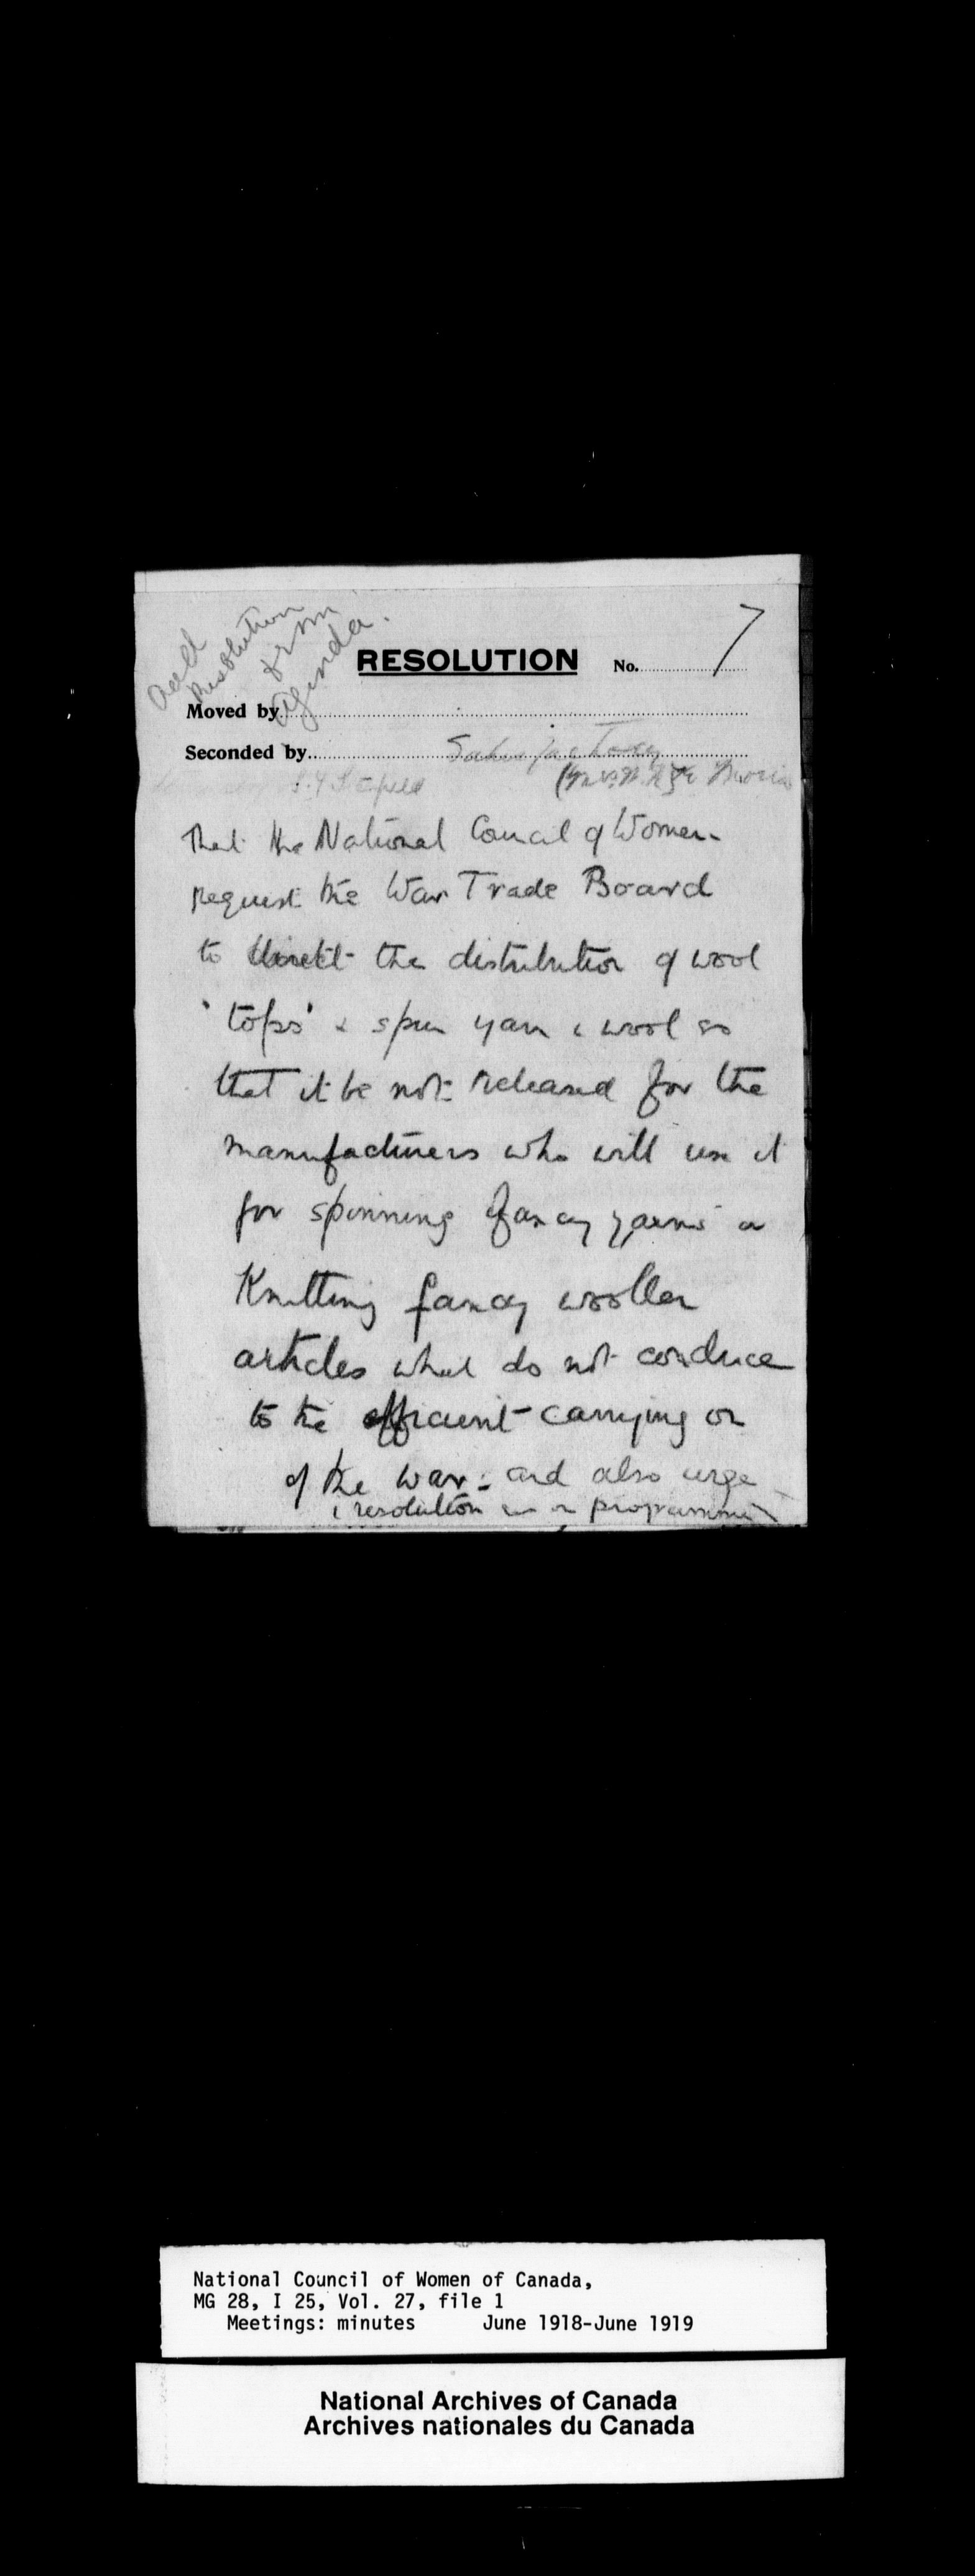 Add
Resolution
from
Agenda.
RESOLUTION No. 7
Moved by
Seconded by
That the National Council of Women
request the War Trade Board
to direct the distribution of wool
'tops' & spun yarn & wool so
that it be not released for the
manufacturers who will use it
for spinning fancy yarns or
Knitting fancy woollen
articles what do not conduce
to the efficient carrying on
of the war - and also urge
resolution on programme
National Council of Women of Canada,
MG 28, I 25, Vol. 27, file 1
Meetings: minutes June 1918-June 1919
National Archives of Canada
Archives nationales du Canada